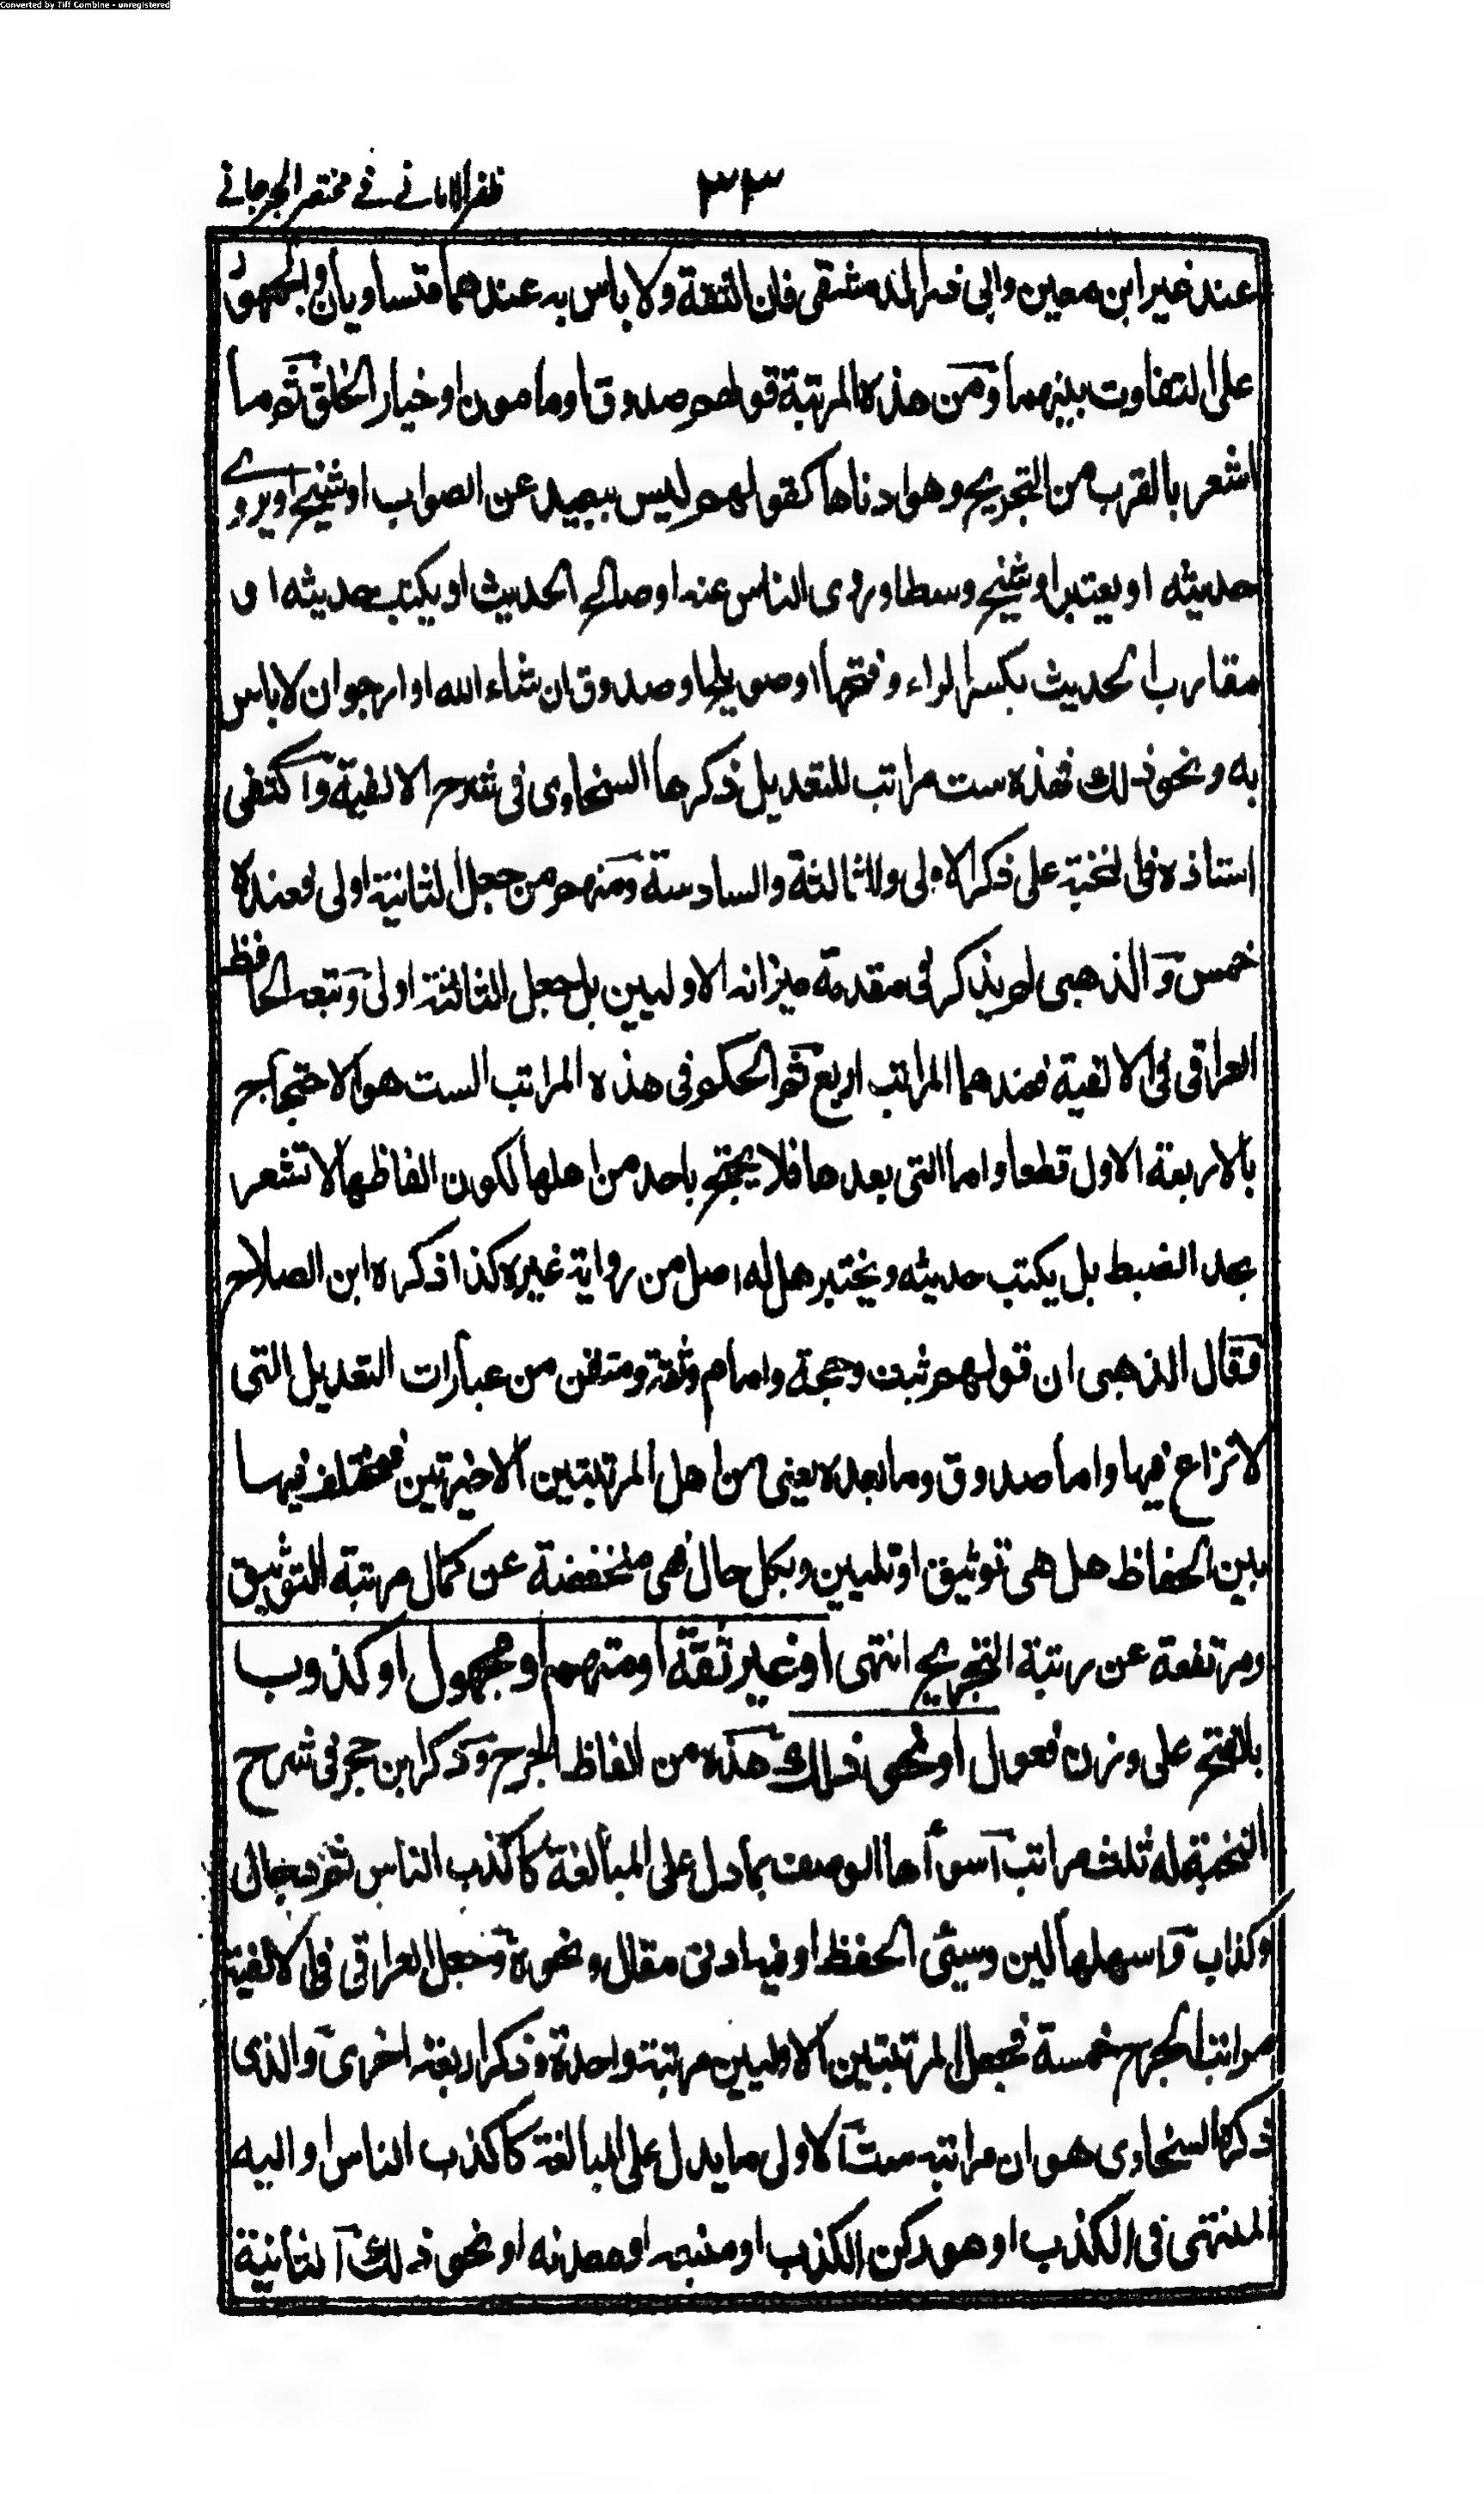 Converted by Tiff Combine - unregistered
٣٣ ظفر الامانے فے مختصر الجرجانے
عند غير ابن معين وابي ذر الدمشقى فان الثقة ولا باس به عندهما متساويان والجمهور
على التفاوت بينهما ومن هذه المرتبة قولهم صدوق او مامون او خيار الخلق ثم ما
اشعر بالقرب من التجريح وهو ادناها كقولهم ليس ببعيد عن الصواب او شيخ او يروے
حديثه او يعتبر او شيخ وسط او روى الناس عنه او صالح الحديث او يكتب حديثه او
مقارب الحديث بكسر الراء وفتحها او صويلح او صدوق ان شاء الله او ارجو ان لا باس
به ونحو ذلك فهذه ست مراتب للتعديل ذكرها السخاوى فى شرح الالفية واكتفى
استاذه فى النخبة على ذكر الاولى والثالثة والسادسة ومنهم من جعل الثانية اولى فعنده
خمس والذهبى لم يذكر فى مقدمة ميزانه الاوليين بل جعل الثالثة اولى وتبعه الحافظ
العراقى فى الالفية فعندهما المراتب اربع ثم الحكم فى هذه المراتب الست هو الاحتجاج
بالاربعة الاول قطعا واما التى بعدها فلا يحتج باحد من اهلها لكون الفاظها لا تشعر
بحد الضبط بل يكتب حديثه ويختبر هل له اصل من رواية غيره كذا ذكره ابن الصلاح
فقال الذهبى ان قولهم ثبت وحجة وامام وثقة ومتقن من عبارات التعديل التى
لا نزاع فيها واما صدوق وما بعده يعنى من اهل المرتبتين الاخيرتين فمختلف فيها
بين الحفاظ هل هى توثيق او تليين وبكل حال فهى منخفضة عن كمال مرتبة التوثيق
ومرتفعة عن رتبة التجريح انتهى او غير ثقة او متهم او مجهول او كذوب
بالفتح على وزن فعول او نحو ذلك هذه من الفاظ الجرح وذكر ابن حجر فى شرح
النخبة له ثلث مراتب اسوأها الوصف بما دل على المبالغة كاكذب الناس ثم دجال
وكذاب واسهلها لين وسيئ الحفظ او فيه ادنى مقال ونحوه وجعل العراقى فى الالفية
مراتب الجرح خمسة فجعل المرتبتين الاوليين مرتبة واحدة وذكر اربعة اخرى والذى
ذكره السخاوى هو ان مراتبه ست الاولى ما يدل على المبالغة كاكذب الناس او اليه
المنتهى فى الكذب او هو ركن الكذب او منبعه او معدنه او نحو ذلك الثانية